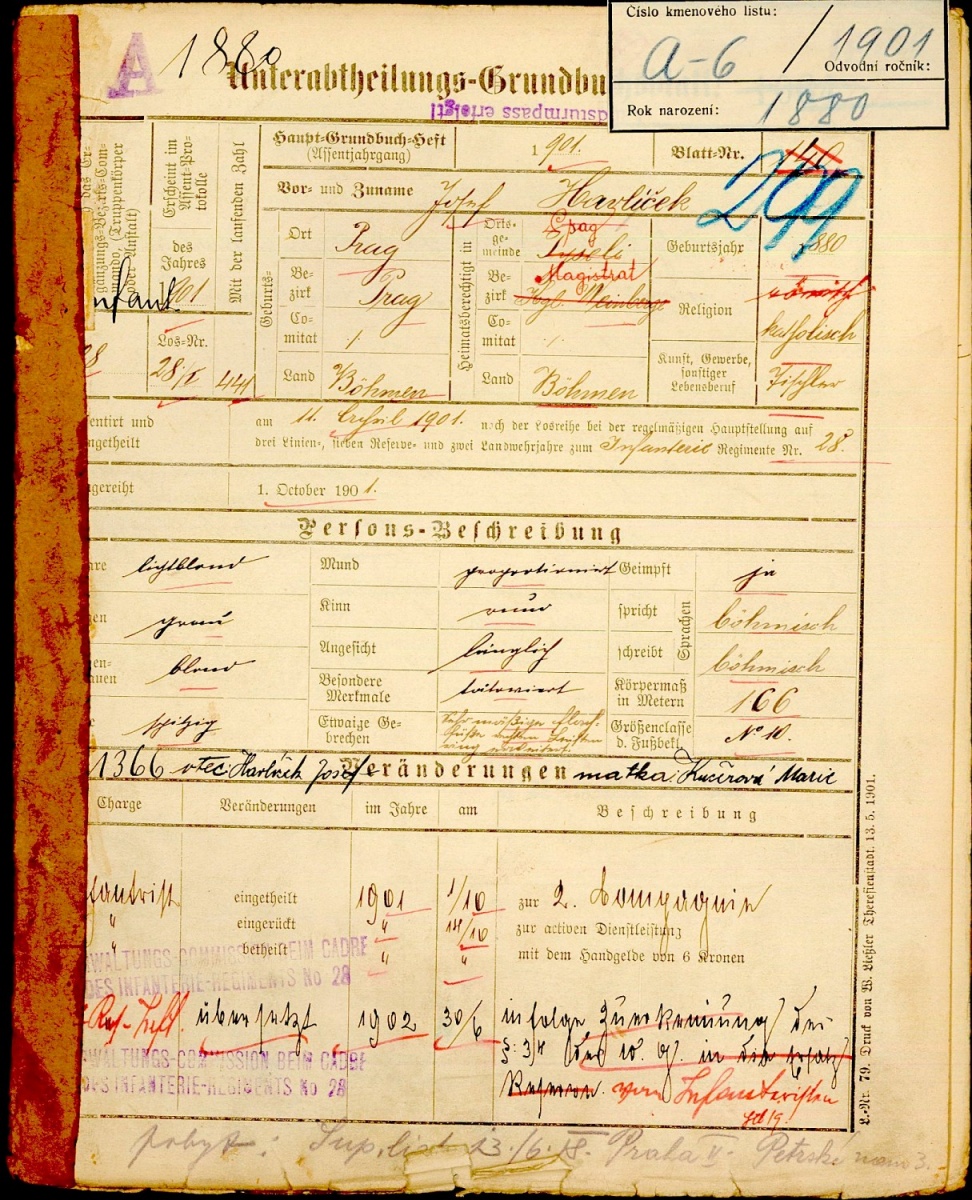 Číslo kmenového listu:
A-6 / 1901
Odvodní ročník:
Rok narození: 1880
A 1880
Unterabtheilungs-Grundbu
dsturmpass erfolgt!
Haupt-Grundbuch-Heft 1901. Blatt-Nr.
(Assentjahrgang)
299
Vor- und Zuname Josef Havlíček
gänzungs-Bezirks-Com-
mando, (Truppenkörper
oder Anstalt)
Erscheint im
Assent-Pro-
tokolle
des
Jahres
1901
Los-Nr.
28/I
Mit der laufenden Zahl
441
Geburts-
Ort Prag
Be-
zirk Prag
Co-
mitat /
Land Böhmen
Heimatsberechtigt in
Orts-
ge-
meinde Prag
Be-
zirk Magistrat
Kgl. Weinberge
Co-
mitat
Land Böhmen
Geburtsjahr 1880
Religion römisch
katholisch
Kunst, Gewerbe,
sonstiger
Lebensberuf Tischler
entirt und
ngetheilt
am 11. April 1901. nach der Losreihe bei der regelmäßigen Hauptstellung auf
drei Linien-, sieben Reserve- und zwei Landwehrjahre zum Infanterie Regimente Nr. 28.
gereiht 1. October 1901.
Persons-Beschreibung
are lichtblond Mund proportionirt Geimpft ja
en grau Kinn rund spricht böhmisch
Sprachen
en-
auen blond Angesicht länglich schreibt böhmisch
Besondere
Merkmale tätowiert Körpermaß
in Metern 166
e spitzig Etwaige Ge-
brechen Größenclasse
d. Fußbekl. No 10.
1366 otec: Havlíček Josef Veränderungen matka: Kučírová Marie
Charge Veränderungen im Jahre am Beschreibung
fanterist eingetheilt 1901 1/10 zur 2. Compagnie
" eingerückt " 14/10 zur activen Dienstleistung
" betheilt " " mit dem Handgelde von 6 Kronen
WALTUNGS-COMMISSION BEIM CADRE
DES INFANTERIE-REGIMENTS No 28
übersetzt 1902 30/6 infolge Zuerkennung der
§: 34 des W. G. in die Ersatz
Reserve. vom Infanteristen
WALTUNGS-COMMISSION BEIM CADRE
DES INFANTERIE-REGIMENTS No 28
pobyt: Sup. list 23./6. Praha II. Petrské nám 3.
L.-Nr. 79. Druck von W. Ließler Theresienstadt. 13. 5. 1901.